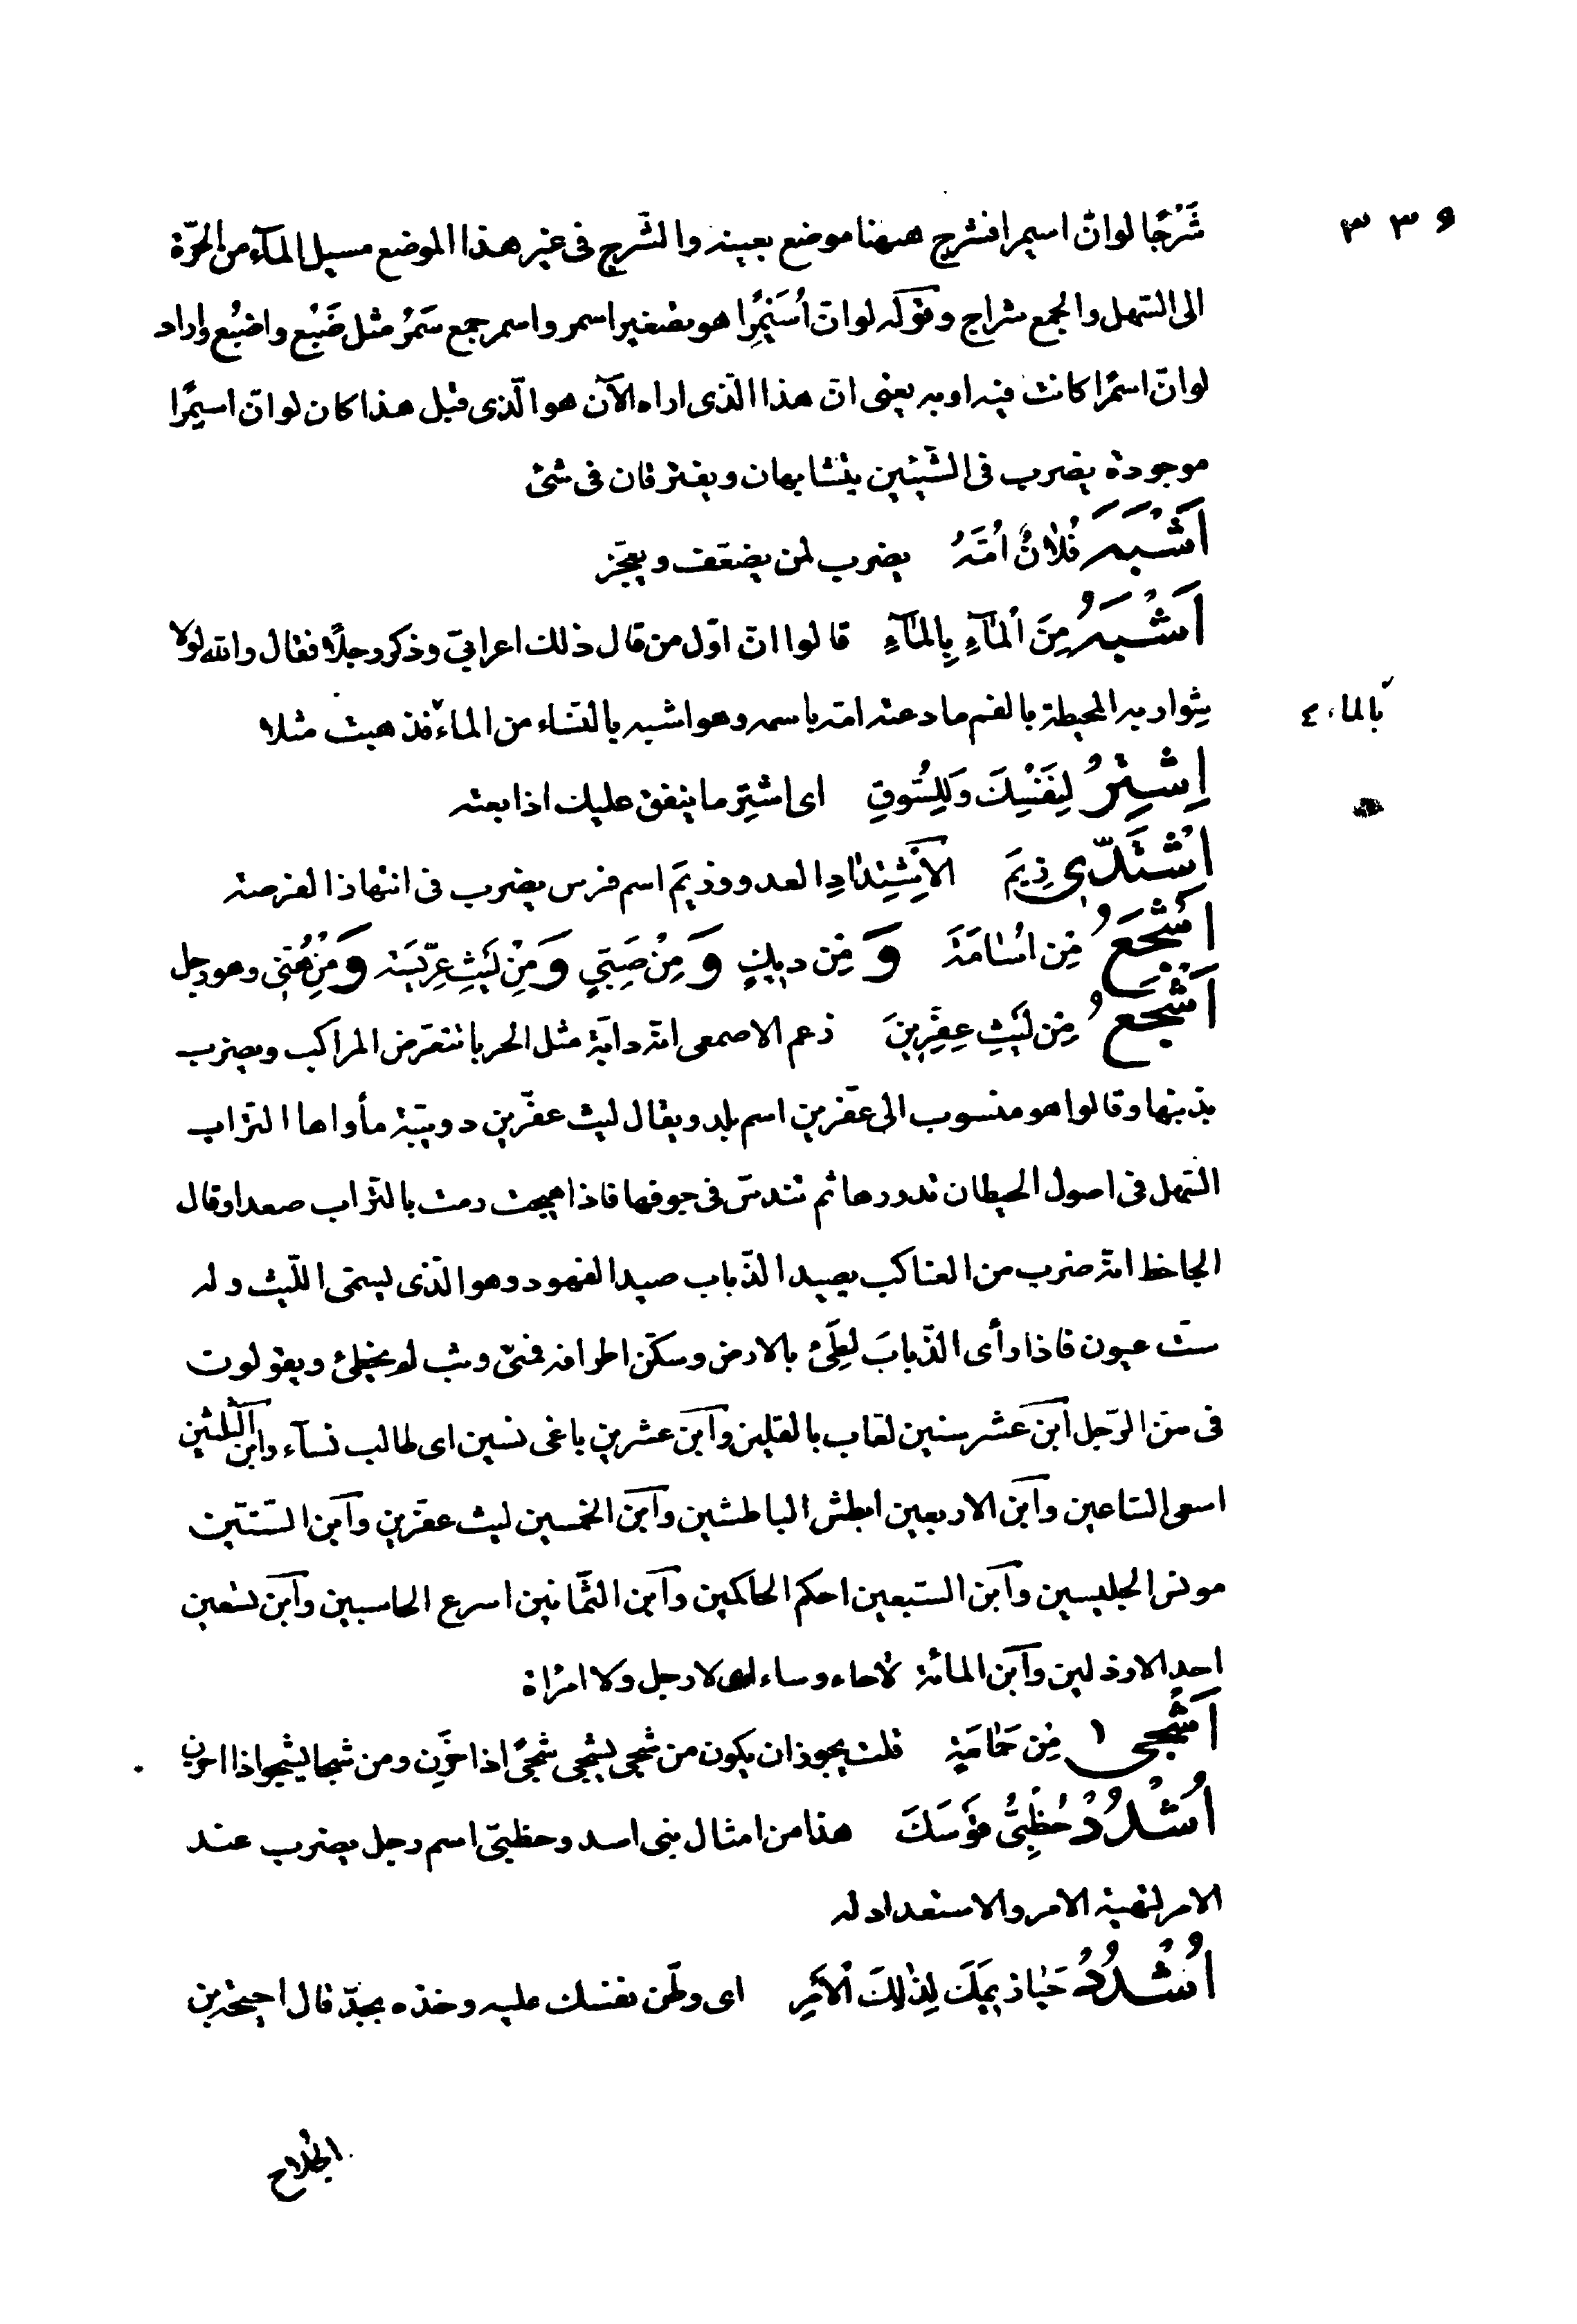 ٣٣٦
شَرْجًا لو انّ اسيمرا فشرج ههنا موضع بعينه والشّرج فى غير هذا الموضع مسيل المآء من الحرّة
الى السّهل والجمع شراج وقوله لو انّ اُسَيْمِرًا هو تصغير اسمر واسمر جمع سَمُرْ مثل ضَبُع واضبُع واراد
لو انّ اسمرًا كانت فيه او به يعنى انّ هذا الّذى اراه الآن هو الّذى قبل هذا كان لو انّ اسيمرًا
موجودة يضرب فى الشّيئين يتشابهان ويفترقان فى شئ
اَشْبَهَ فُلانٌ اُمَّهُ يضرب لمن يضعّف ويعجّز
اَشْبَهُ مِنَ المآءِ بِالمآءِ قالوا انّ اوّل من قال ذلك اعرابىّ وذكر رجلًا فقال والله لولا
شواربه المحيطة بالفم ما دعته امّه باسمه وهو اشبه بالنّساء من الماء فذهبت مثلا
بالماء
اِشْتِرْ لِنَفْسِكَ وَلِلسُّوقِ اى اشتِرِ ما ينفق عليك اذا بعته
اشْتَدّى زِيَم الاِشْتِدادِ العدو وزيَم اسم فرس يضرب فى انتهاز الفرصة
اَشْجَعُ مِن اُسامَةَ وَ مِن ديكٍ وَ مِنْ صَبيٍّ وَ مِنْ لَيْثِ عِرّيسَة وَ مِنْ هُنَىٍ وهو رجل
اَشْجَعُ مِن لَيْثِ عِفِرّينَ زعم الاصمعى انّه دابّة مثل الحرباء تتعرّض للراكب ويضرب
بذنبها وقالوا هو منسوب الى عفرّين اسم بلد ويقال ليث عفرّين دويبّة مأواها التراب
السّهل فى اصول الحيطان تدورها ثم تندسّ فى جوفها فاذا هيجت رمت بالتّراب صعدا وقال
الجاحظ انّه ضرب من العناكب يصيد الذّباب صيد الفهود وهو الّذى يسمّى اللّيث وله
ستّ عيون فاذا رأى الذّبابَ لطِئَ بالارض وسكّن اطرافه فمتى وثب لم يخطئ ويقولون
فى سنّ الرّجل ابن عشر سنين لعّاب بالقلين وابن عشرين باغى نسين اى طالب نسآء وابن الثّلثين
اسعى السّاعين وابن الاربعين ابطش الباطشين وابن الخمسين ليث عفرّين وابن السّتّين
مونس الجليسين وابن السّبعين احكم الحاكمين وابن الثّمانين اسرع الحاسبين وابن تسعين
احد الارذلين وابن المائة لا حاء وساء اى لا رجل ولا امراة
اَشْجى مِن حَمامَةٍ قلت يجوز ان يكون من شجى يشجى شجًى اذا حَزِن ومن شجا يشجوا اذا احزن
اُشْدُدْ حُظُبّى قَوْسَكَ هذا من امثال بنى اسد وحظبّى اسم رجل يضرب عند
الامر بتهيئة الامر والاستعداد له
اُشْدُدْ حَيازيمَكَ لِذلِكَ الاَمْرِ اى وطّن نفسك عليه وخذه بجدّ قال احيحة بن
الجُلاح